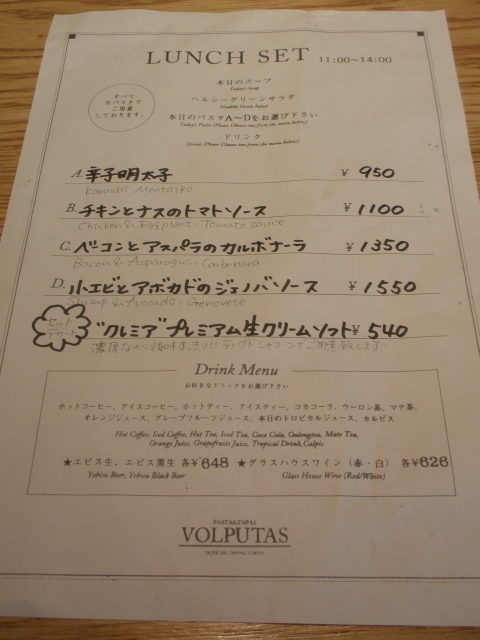 LUNCH SET 11:00~14:00
すべて
生パスタで
ご用意
しております。
本日のスープ
Today's Soup
ヘルシーグリーンサラダ
Healthy Green Salad
本日のパスタA〜Dをお選び下さい
Today's Pasta (Please Choose one from the menu below)
ドリンク
Drink (Please Choose one from the menu below)
A. 辛子明太子 ¥ 950
Karashi Mentaiko
B. チキンとナスのトマトソース ¥ 1100
Chicken & Eggplant. Tomato sauce
C. ベーコンとアスパラのカルボナーラ ¥ 1350
Bacon & Asparagus. Carbonara
D. 小エビとアボカドのジェノバソース ¥ 1550
Shrimp & Avocado. Genovese
セット
デザート
"クレミア"プレミアム生クリームソフト ¥ 540
Drink Menu
お好きなドリンクをお選び下さい
ホットコーヒー、アイスコーヒー、ホットティー、アイスティー、コカコーラ、ウーロン茶、マテ茶、
オレンジジュース、グレープフルーツジュース、本日のトロピカルジュース、カルピス
Hot Coffee, Iced Coffee, Hot Tea, Iced Tea, Coca Cola, Oolongtea, Mate Tea,
Orange Juice, Grapefruits Juice, Tropical Drink, Calpis
★エビス生、エビス黒生 各¥648 ★グラスハウスワイン (赤・白) 各¥626
Yebisu Beer, Yebisu Black Beer Glass House Wine (Red/White)
PASTA&TAPAS
VOLPUTAS